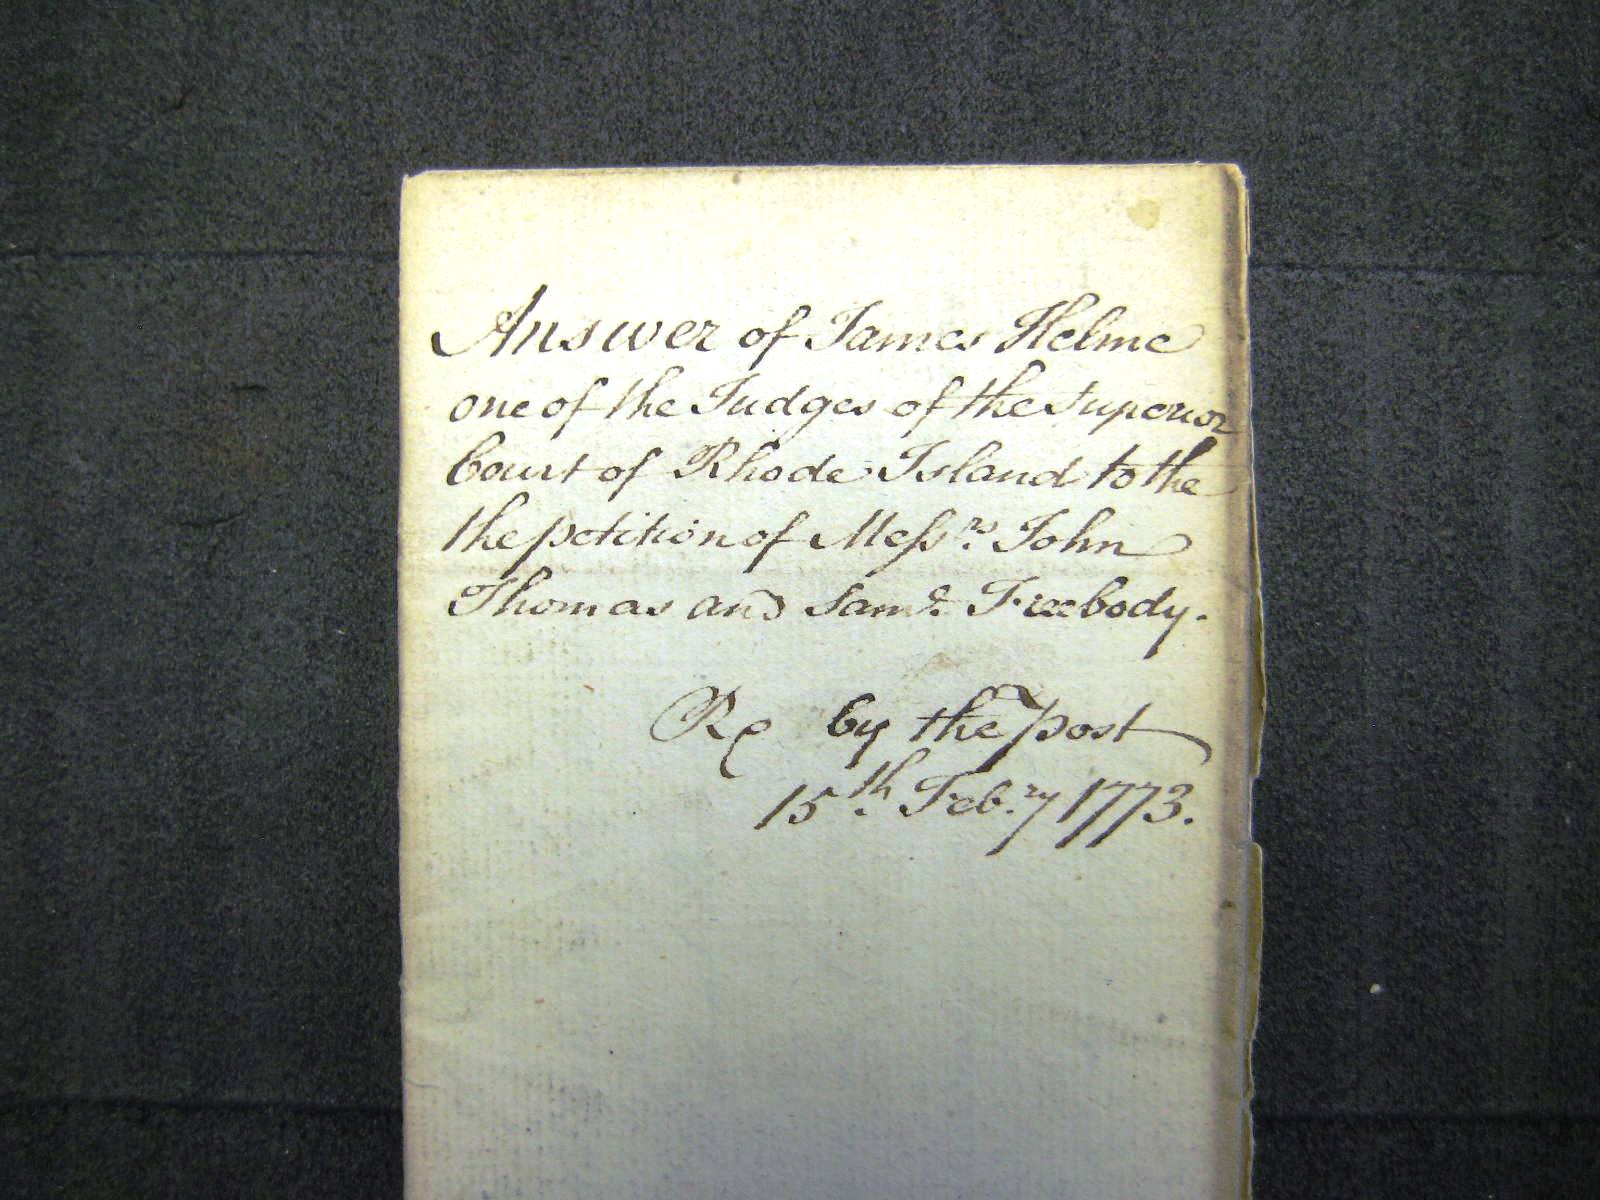 Answer of James Helme
one of the Judges of the Superior
Court of Rhode Island to the
the petition of Messrs. John
Thomas and Saml. Freebody.
Re by the post
15th. Febry 1773.